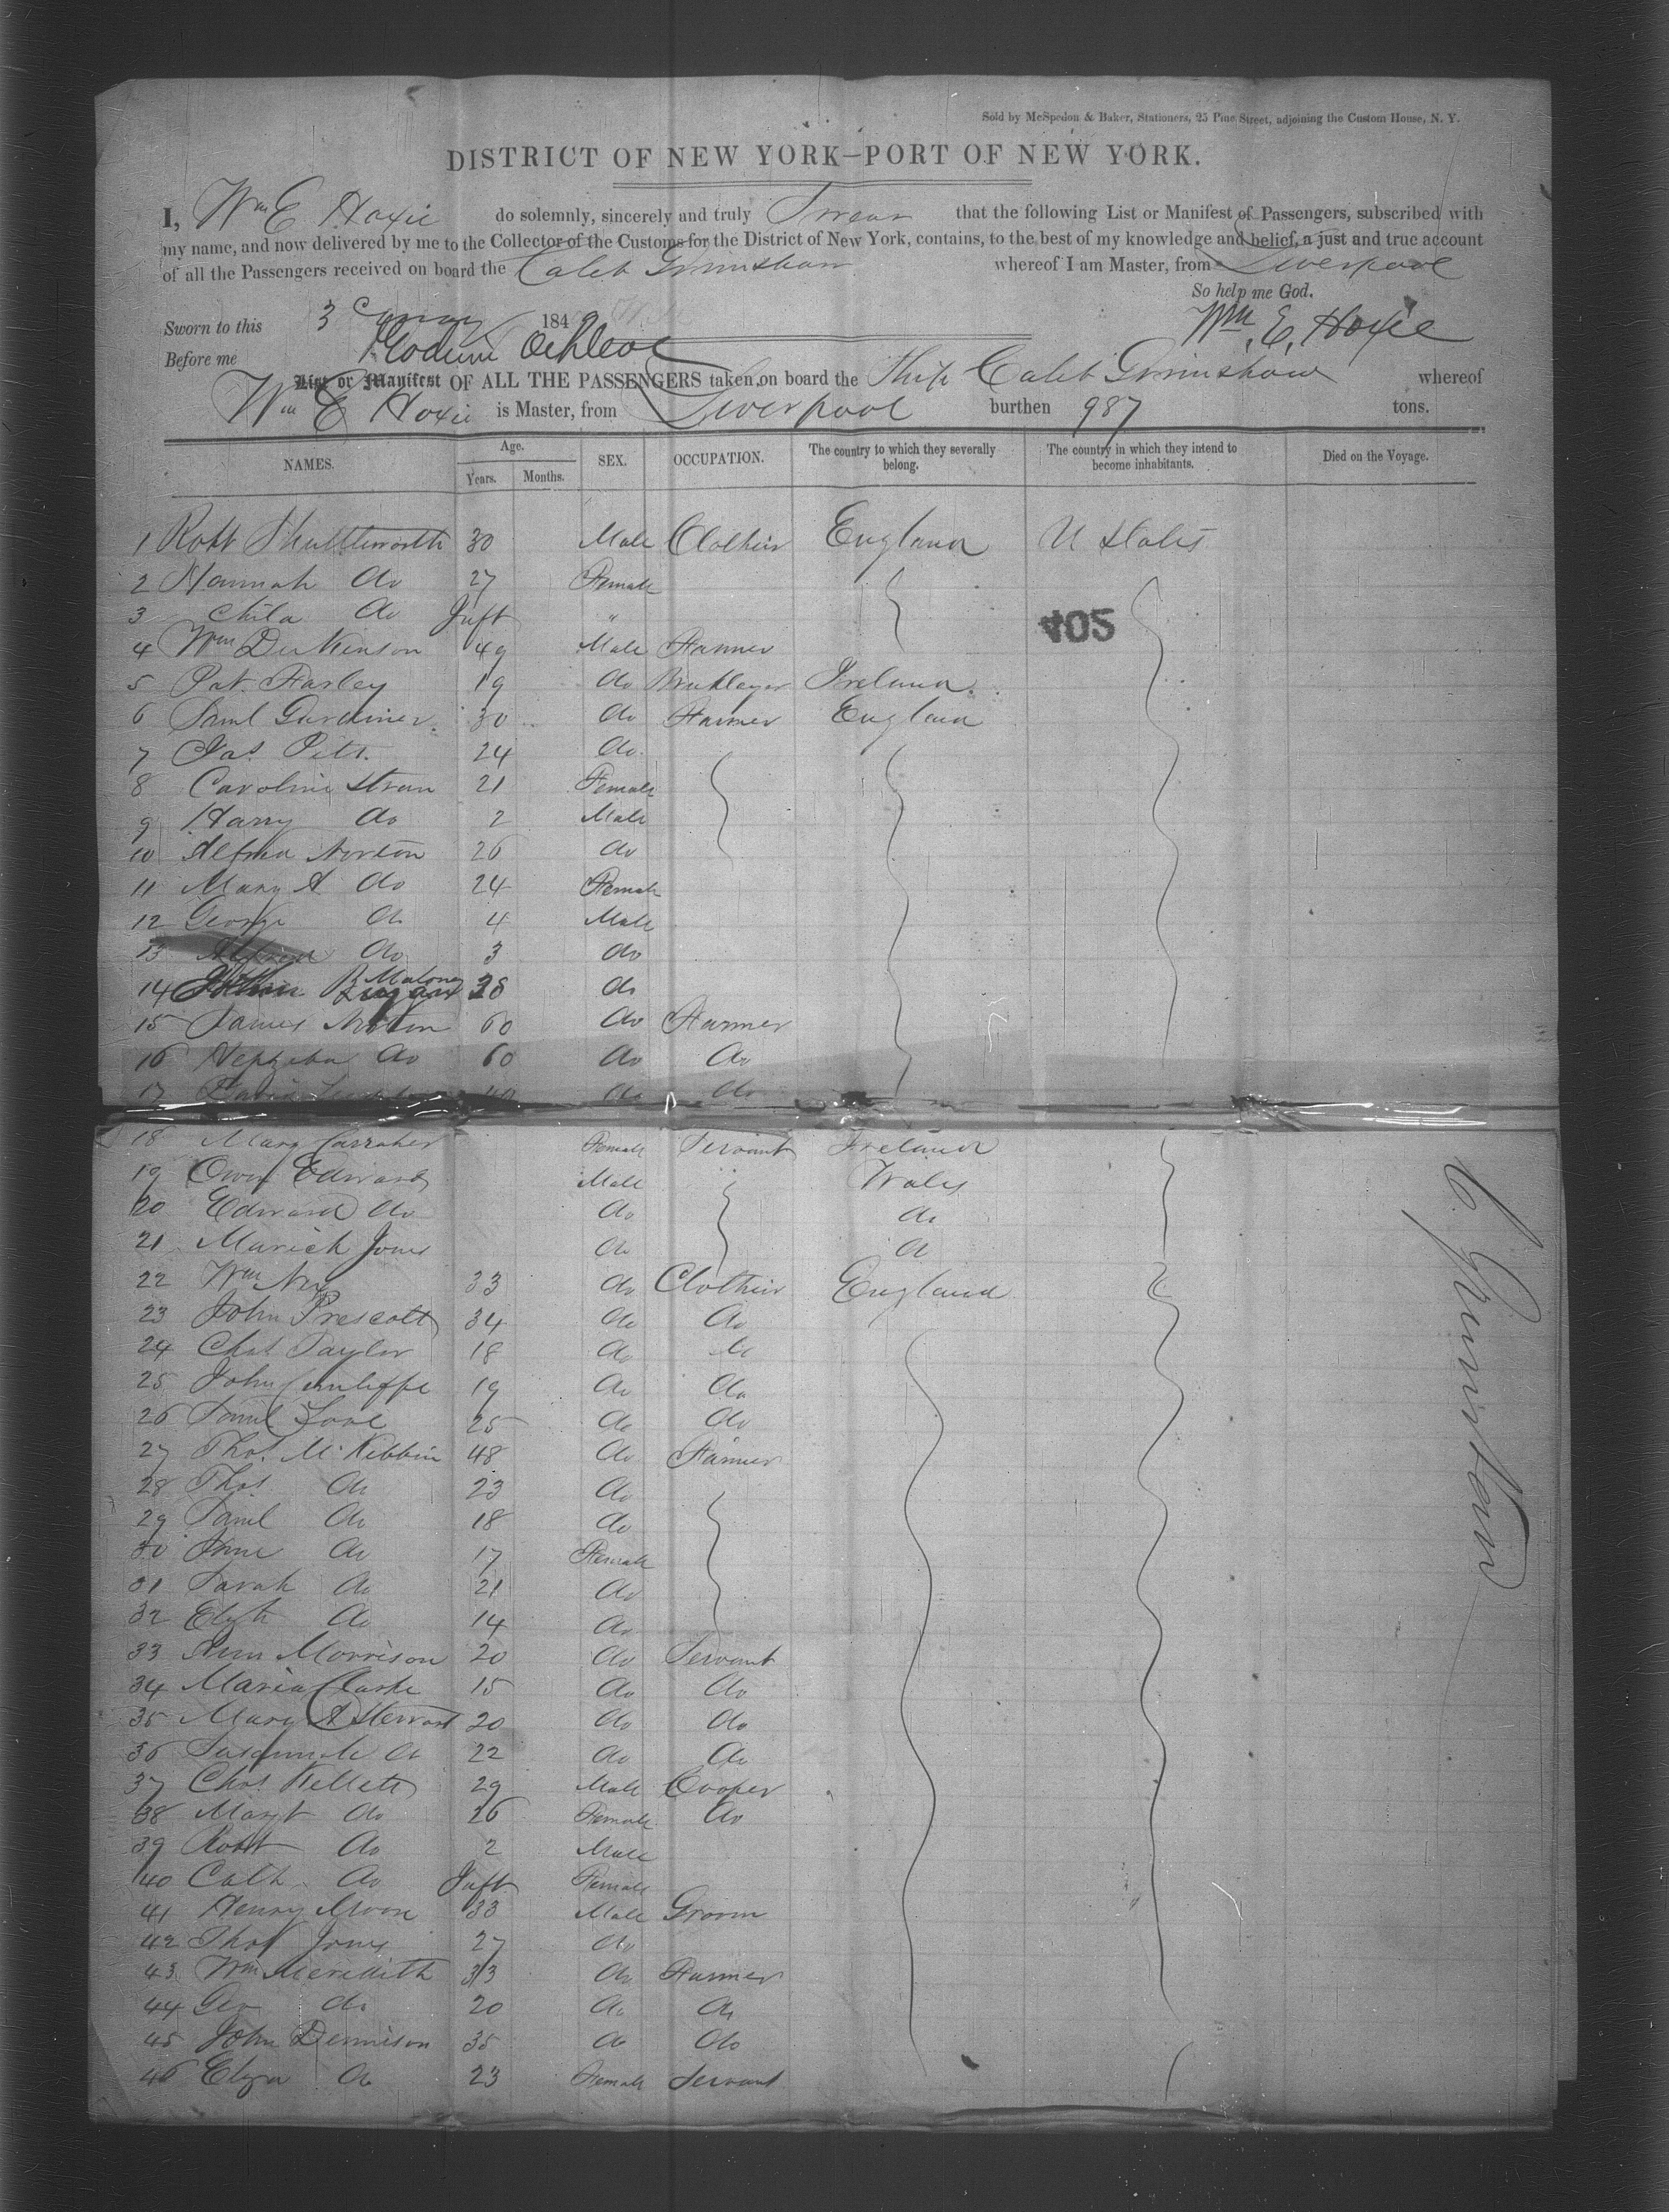 Sold by McSpedon & Baker, Stationers, 25 Pine Street, adjoining the Custom House, N. Y.
DISTRICT OF NEW YORK—PORT OF NEW YORK.
I, Wm E Hoxie do solemnly, sincerely and truly Swear that the following List or Manifest of Passengers, subscribed with
my name, and now delivered by me to the Collector of the Customs for the District of New York, contains, to the best of my knowledge and belief, a just and true account
of all the Passengers received on board the Caleb Grimshaw whereof I am Master, from Liverpool
So help me God.
Sworn to this 3 184
Wm. E. Hoxie
Before me
List or Manifest OF ALL THE PASSENGERS taken on board the Ship Caleb Grimshaw whereof
Wm E Hoxie is Master, from Liverpool burthen 987 tons.
NAMES. Age. Years. Months. SEX. OCCUPATION. The country to which they severally belong. The country in which they intend to become inhabitants. Died on the Voyage.
1 Robt Shuttleworth 30 Male Clothier England U States
2 Hannah do 27 Female
3 Child do Inft "
405
4 Wm Dickinson 49 Male Farmer
5 Pat. Farley 19 do Bricklayer Ireland
6 Saml Gardiner 30 do Farmer England
7 Jas Pitt 24 do
8 Caroline 21 Female
9 Harry do 2 Male
10 Alfred Norton 26 do
11 Mary A do 24 Female
12 George do 4 Male
13 Alfred do 3 do
14 Maloney 38 do
15 James Norton 60 do Farmer
16 Hephzeba do 60 do do
17 David 40 do do
18 Mary Carraher Female Servant Ireland
19 Owen Edwards Male " Wales
20 Edward do do do
21 Jones do do
22 Wm 33 do Clothier England
23 John Prescott 34 do do
24 Chas Taylor 18 do do
25 John Cunliffe 19 do do
26 Saml 25 do do
27 Thos. McKibbin 48 do Farmer
28 Thos do 23 do
29 Saml do 18 do
30 Jane do 17 Female
31 Sarah do 21 do
32 Elizth do 14 do
33 Ann Morrison 20 do Servant
34 Maria Clarke 15 do do
35 Mary A Stewart 20 do do
36 Susannah do 22 do do
37 Chas Kellett 29 Male Cooper
38 Margt do 26 Female do
39 Robt do 2 Male
40 Cath do Inft Female
41 Henry Moore 33 Male Groom
42 Thos Jones 27 do
43 Wm Meredith 33 do Farmer
44 Geo do 20 do do
45 John Dennison 35 do do
46 Eliza do 23 Female Servant
C. Grimshaw